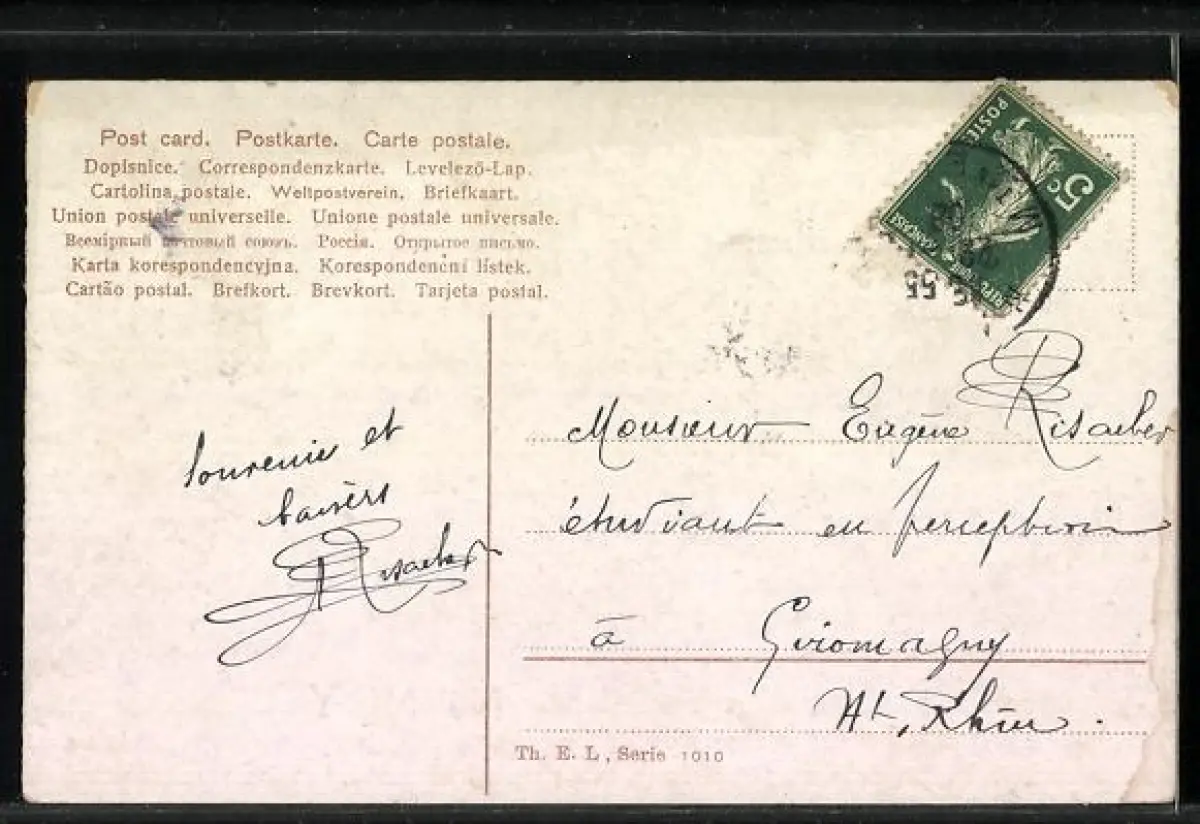 Post card. Postkarte. Carte postale.
Dopisnice. Correspondenzkarte. Levelező-Lap.
Cartolina postale. Weltpostverein. Briefkaart.
Union postale universelle. Unione postale universale.
Всемірный почтовый союзъ. Россія. Открытое письмо.
Karta korespondencyjna. Korespondenční lístek.
Cartão postal. Brefkort. Brevkort. Tarjeta postal.
POSTES
5c
Souvenir et
baisers
Monsieur Eugène
étudiant en perception
à Giromagny
Ht, Rhin.
Th. E. L, Serie 1010